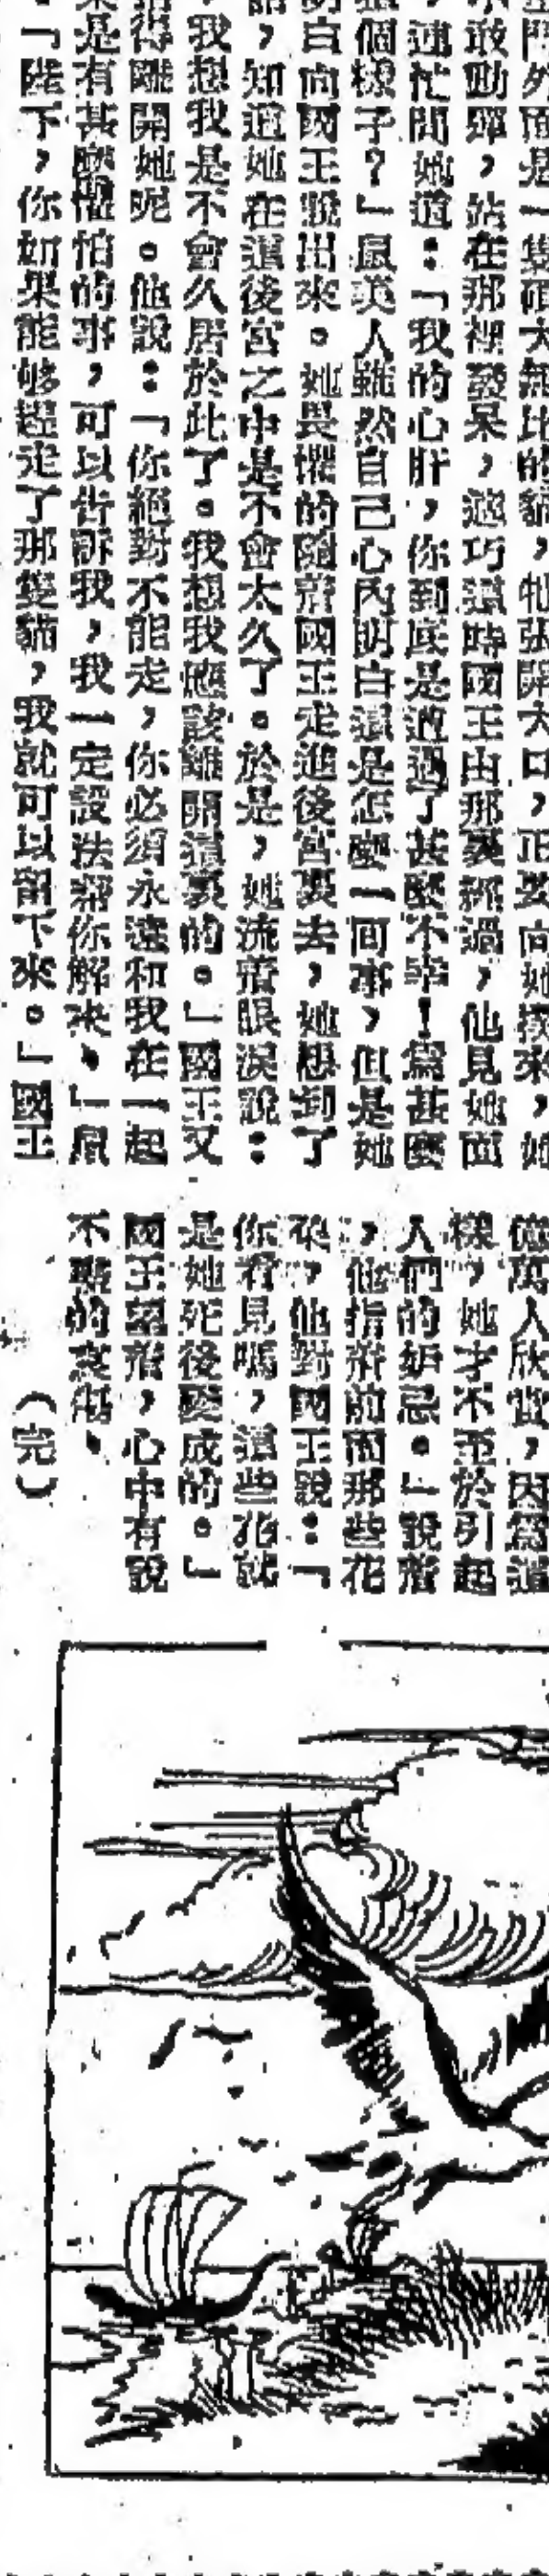 門外面是一隻碩大無比的貓，牠張開大口，正要向她撲來，她
不敢動彈，站在那裡發呆，適巧這時國王由那裏經過，他見她面
，連忙問她道：「我的心肝，你到底是遭遇了甚麼不幸！為甚麼
這個樣子？」鼠美人雖然自己心內明白這是怎麼一回事，但是她
明白向國王說出來。她畏懼的隨着國王走進後宮裏去，她想到了
話，知道她在這後宮之中是不會太久了。於是，她流着眼淚說：
我想我是不會久居於此了。我想我應該離開這裏的。」國王又
得離開她呢。他說：「你絕對不能走，你必須永遠和我在一起
果是有甚麼懼怕的事，可以告訴我，我一定設法幫你解決、」鼠
：「陛下，你如果能够趕走了那隻貓，我就可以留下來。」國王
億萬人欣賞，因為這
樣，她才不至於引起
人們的妒忌。」說着
，他指着前面那些花
朵，他對國王說：「
你看見嗎，這些花就
是她死後變成的。」
國王望着，心中有說
不盡的哀傷、
（完）